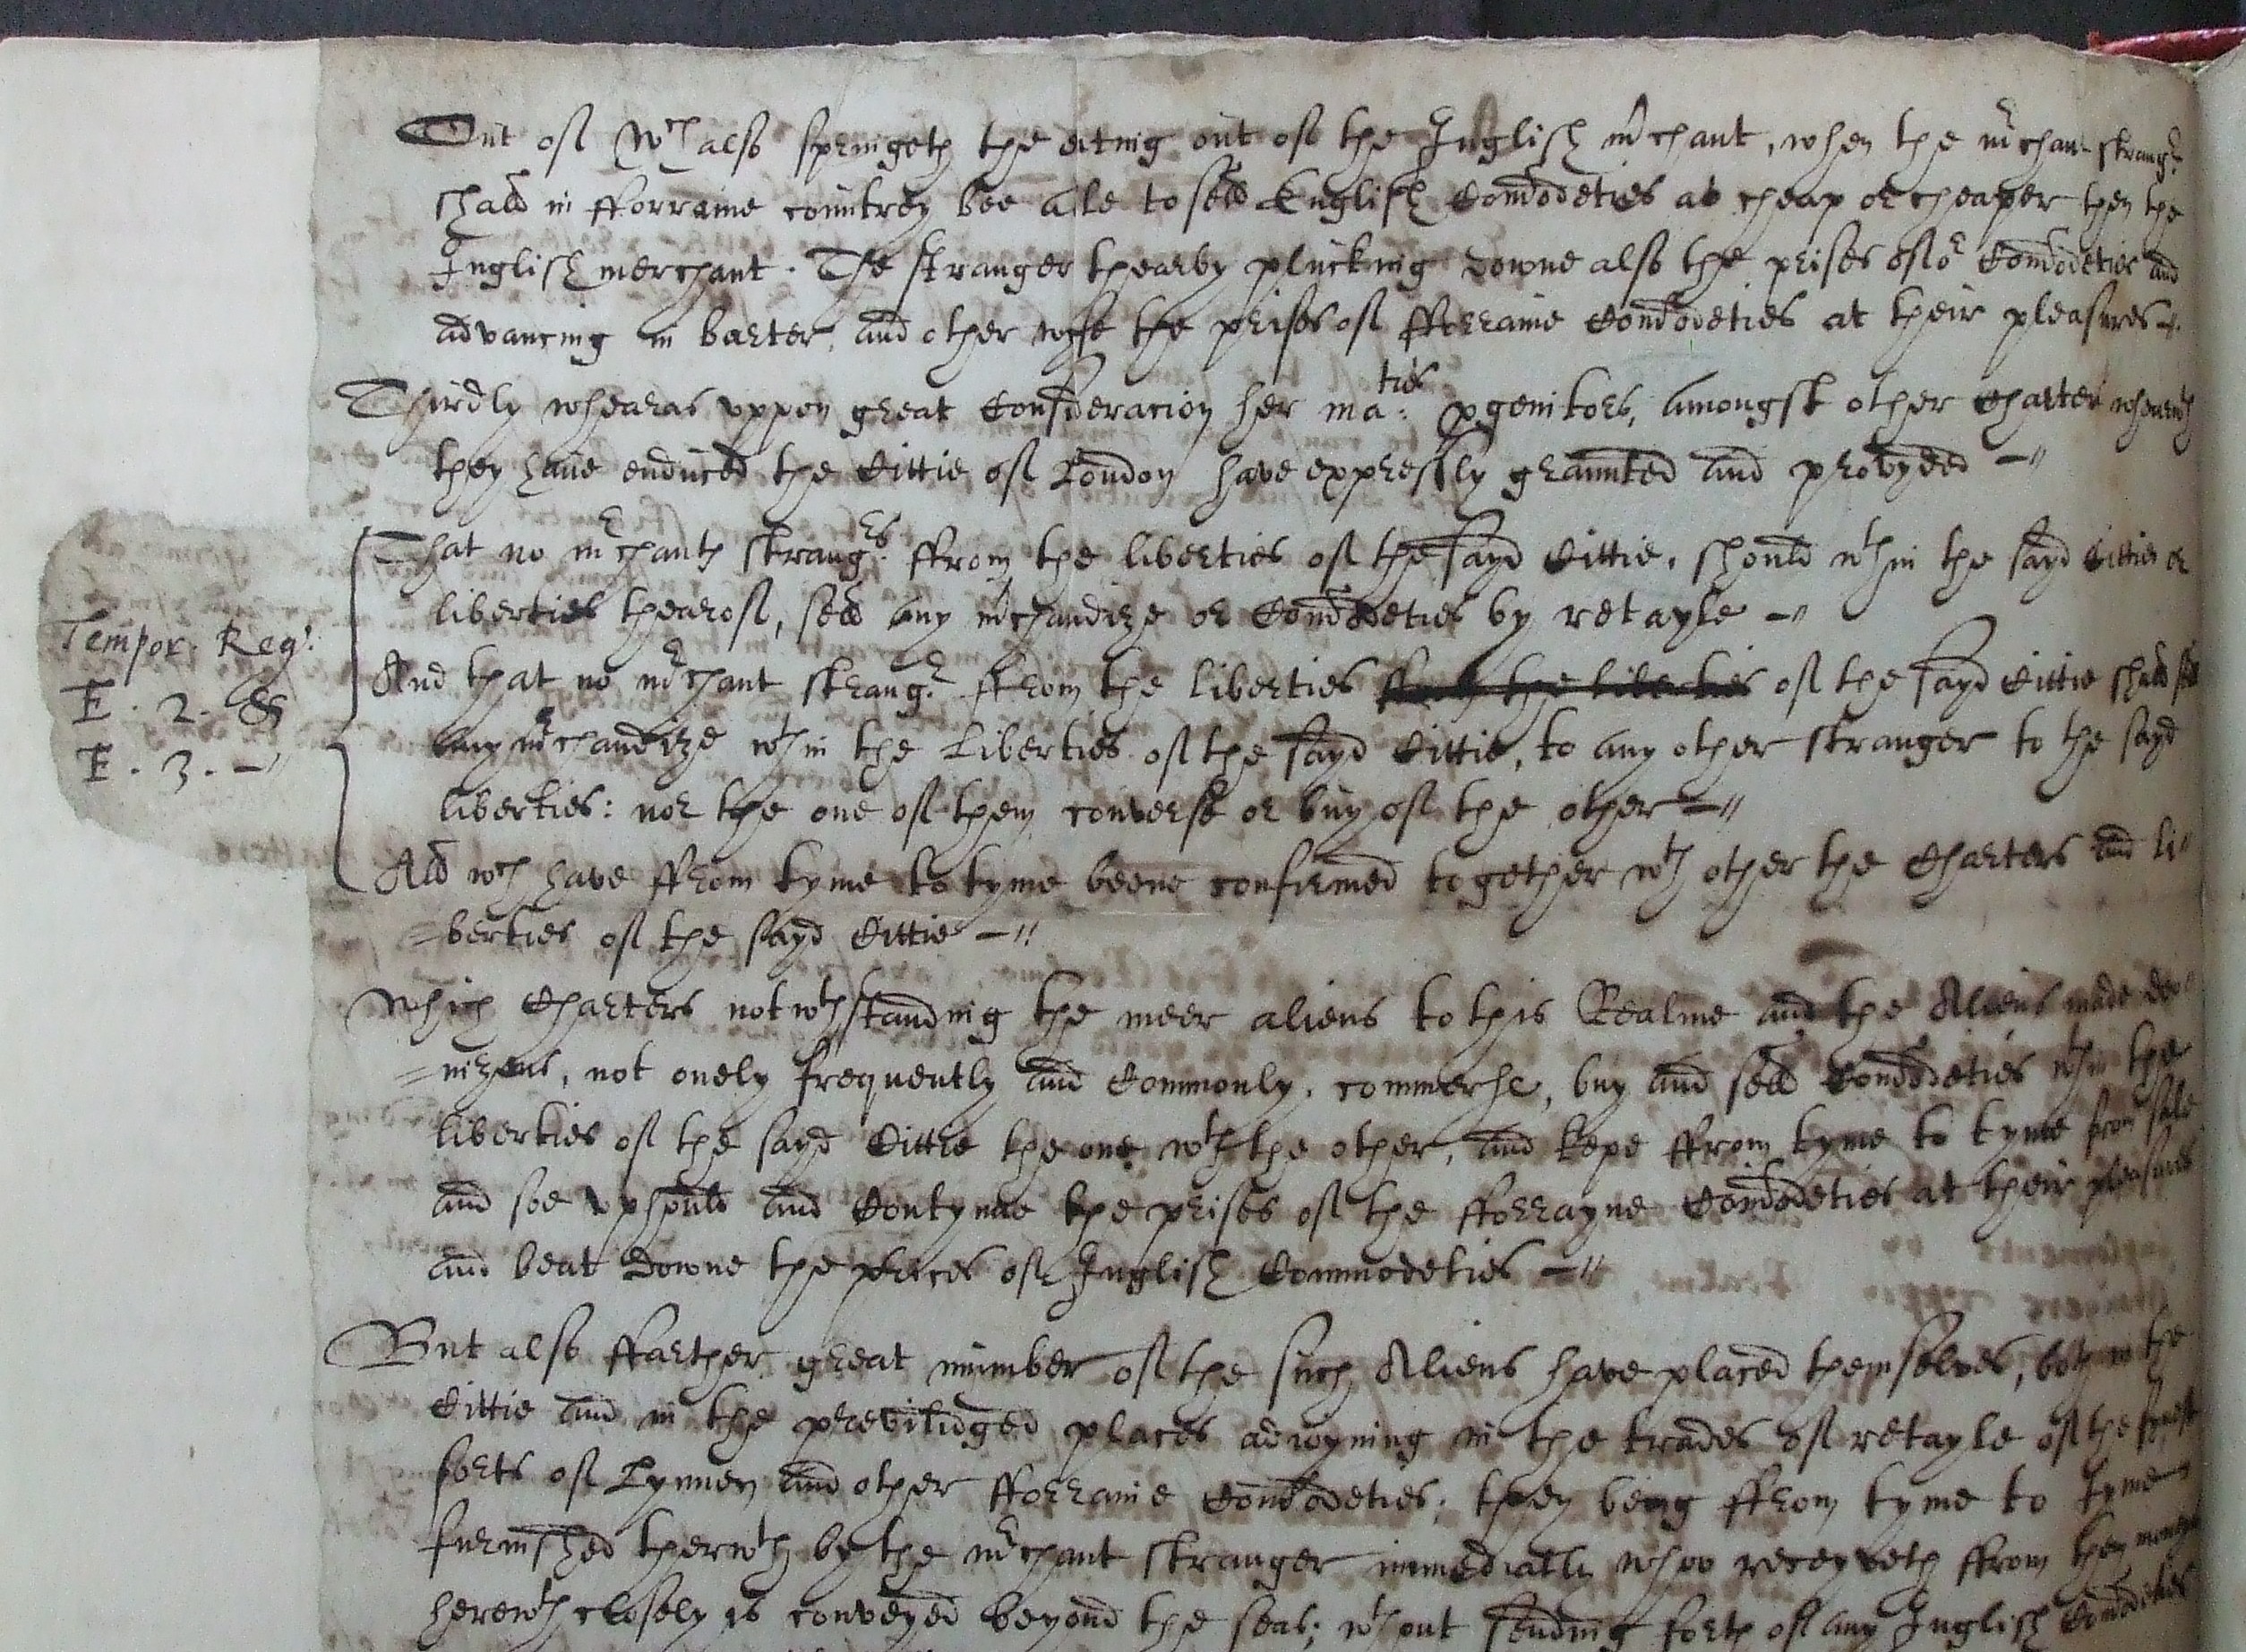 Out of wch also springeth the eating out of the Inglish mrchant, when the mrchant strangr
shall in fforraine countrey bee able to sell English Commodeties as cheap or cheaper then the
Inglish merchant. The stranger thearby plucking downe also the prises of or Commodeties and
advancing in barter, and other wyse the prises of fforraine Commodeties at their pleasures.
Thirdly whearas uppon great Consideracion her maties progenitors, amongst other Charters whearwth
they have enduced the Cittie of London have expressly graunted and provyded
That no mrchants strangrs ffrom the liberties of the sayd Cittie, should wthin the sayd Cittie or
liberties thearof, sell any mrchandize or Commodeties by retayle
Tempor. Reg.
E. 2. &
E. 3.
And that no mrchant strangr ffrom the liberties ffrom the liberties of the sayd Cittie shall sell
any mrchandize wthin the Liberties of the sayd Cittie, to any other stranger to the sayd
liberties: nor the one of them converse or buy of the other
All wch have ffrom tyme to tyme beene confirmed together wth other the Charters and li
=berties of the sayd Cittie
Which Charters notwthstanding the meer aliens to this Realme and the Aliens made de
=nizens, not onely frequently and Commonly, commerse, buy and sell Commodeties wthin the
liberties of the sayd Cittie the one wth the other, and kepe ffrom tyme to tyme from sale
and soe uphould and Contynue the prises of the fforrayne Commodeties at their pleasures
and beat downe the prices of Inglish Commodeties
But also ffarther great number of the such Aliens have placed themselves, both in the
Cittie and in the previlidged places adioyning in the trades of retayle of the
sorts of Lynnen and other fforraine Commodeties, they being ffrom tyme to tyme
furnished therwth by the mrchant stranger immediatly whoo receyveth ffrom them moneys
herewth closely is conveyed beyond the seas; wthout sending forth of any Inglish Commodeties